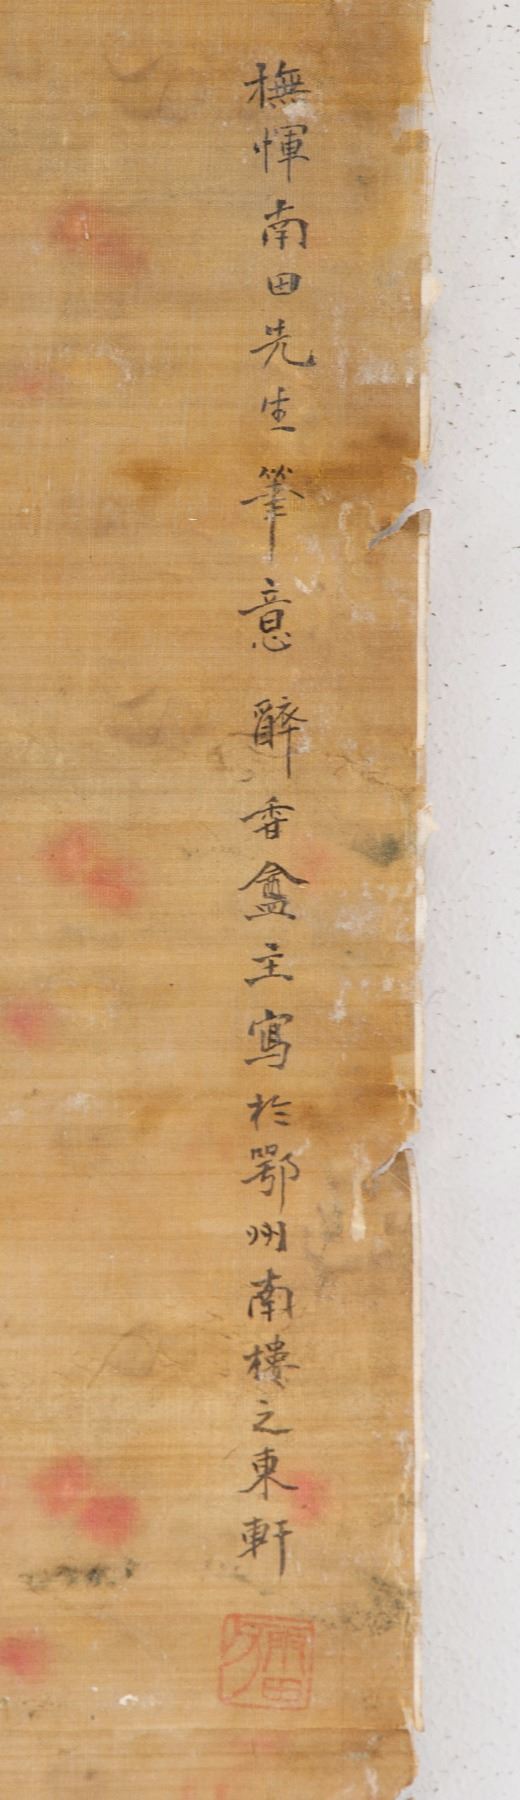 橅惲南田先生筆意 醉香盦主寫於鄂州南樓之東軒